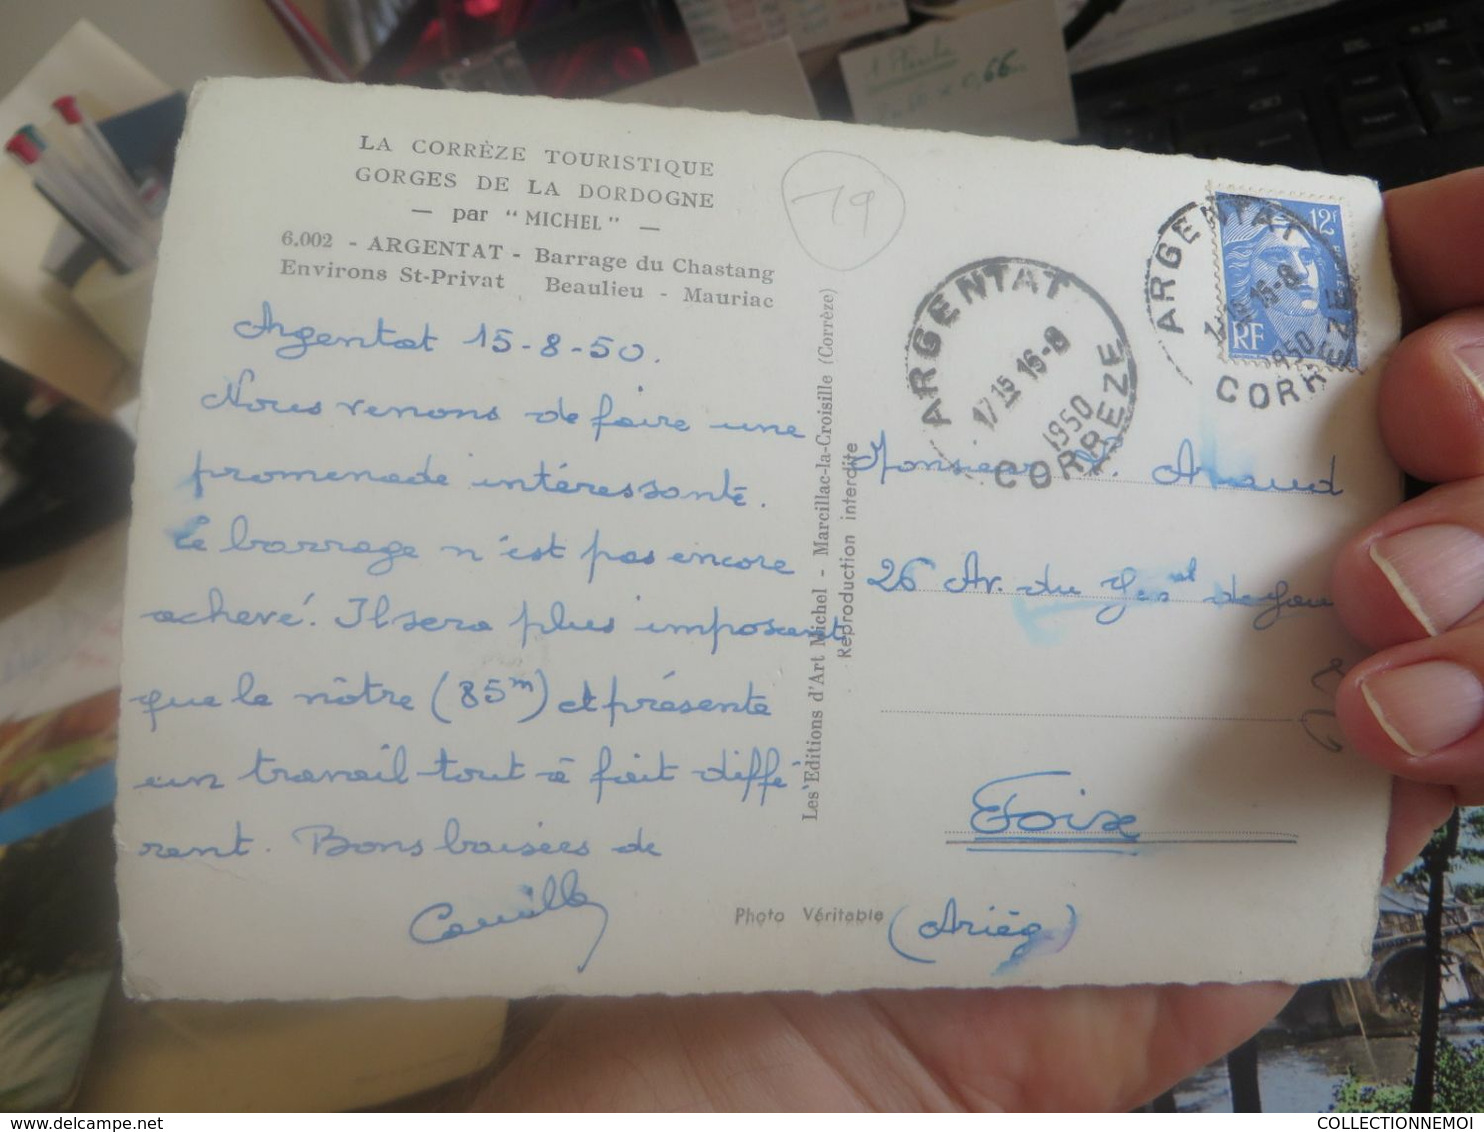 LA CORRÈZE TOURISTIQUE
GORGES DE LA DORDOGNE
— par "MICHEL" —
6.002 - ARGENTAT - Barrage du Chastang
Environs St-Privat Beaulieu - Mauriac
Argentat 15-8-50.
Nous venons de faire une
promenade intéressante.
Le barrage n'est pas encore
achevé. Il sera plus imposant
que le nôtre (85m) et présente
un travail tout à fait diffé
rent. Bons baisers de
Camille
Les Editions d'Art Michel - Marcillac-la-Croisille (Corrèze)
Reproduction interdite
Photo Véritable
19
ARGENTAT
17 15 16-8
1950
CORREZE
ARGENTAT
16-8
1950
CORREZE
12f
RF
Monsieur Araud
26 Av. du
Foix
(Ariég)
1
0,66
COLLECTIONNEMOI